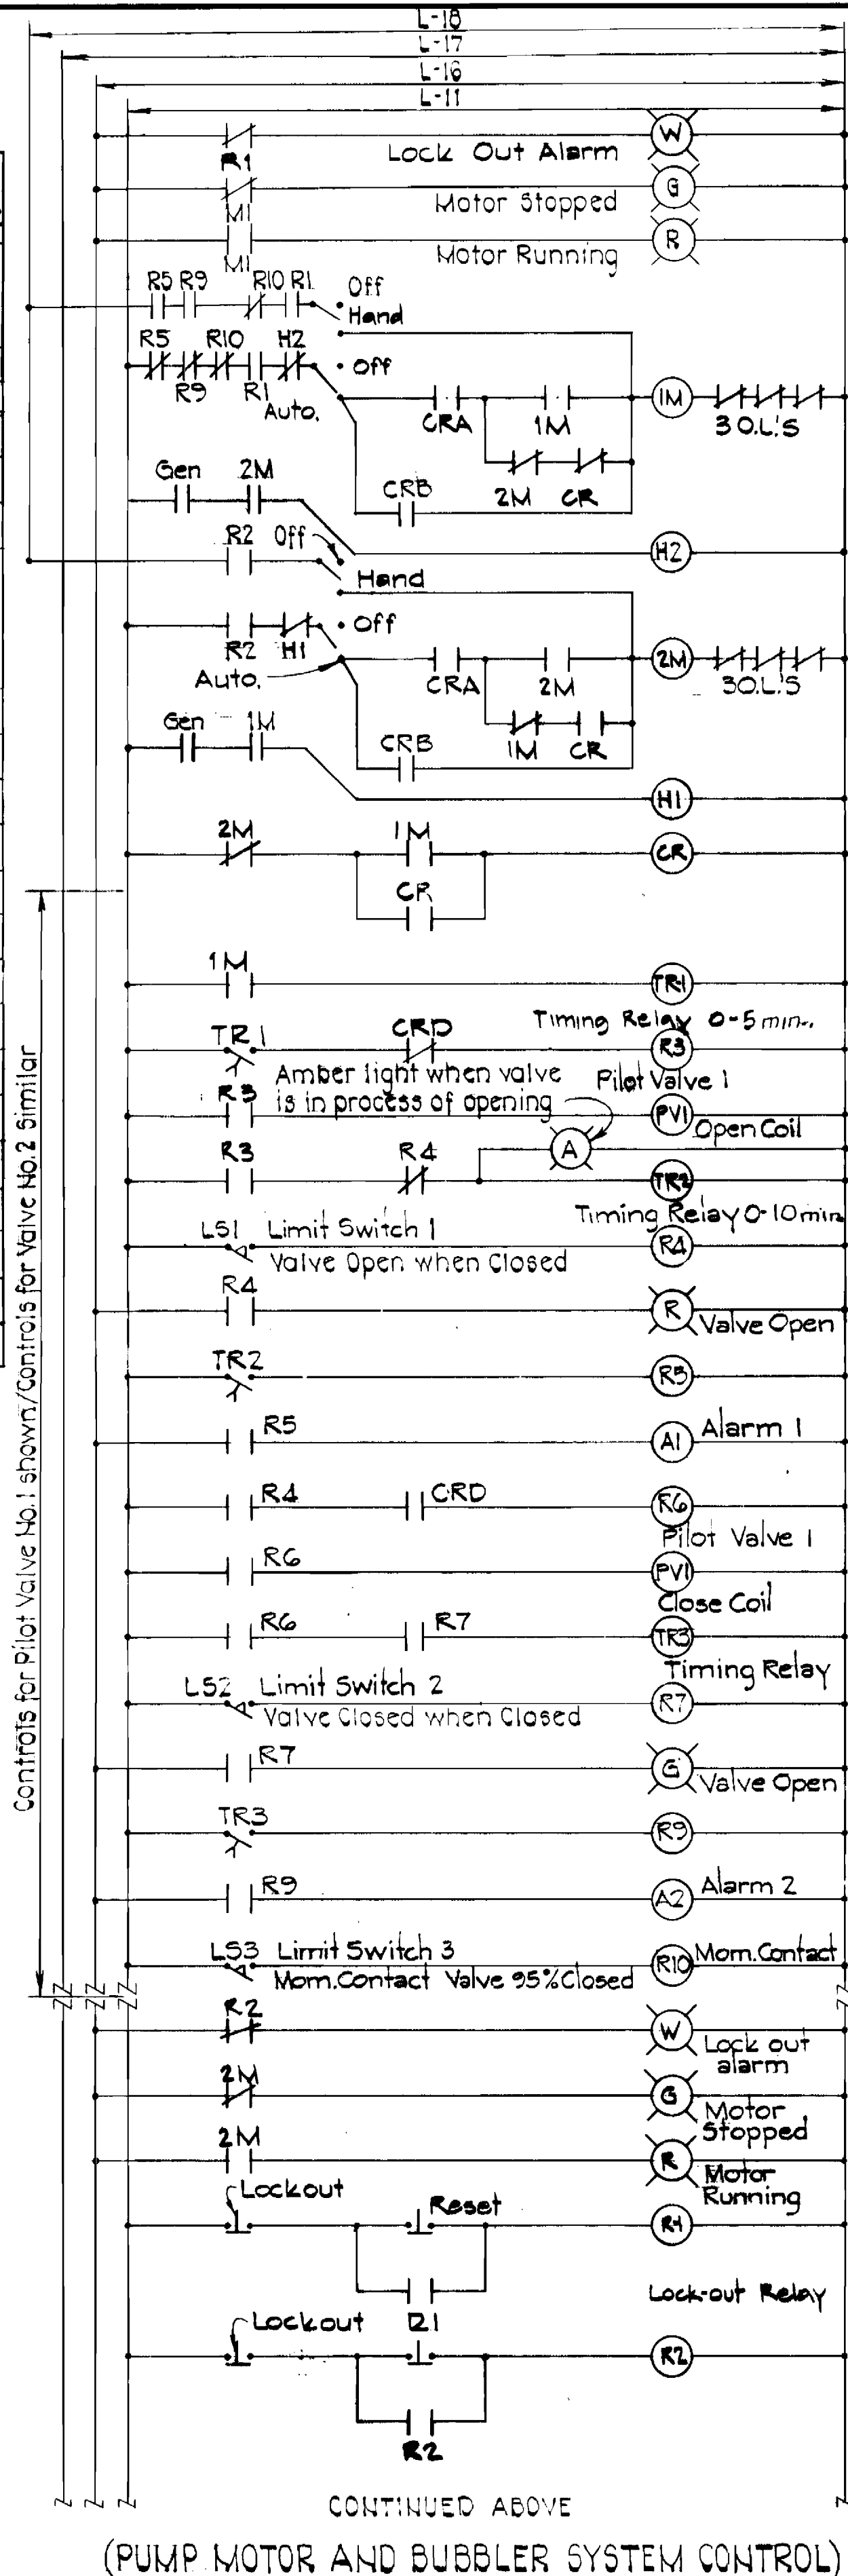 L-18
L-17
L-16
L-11
R1
Lock Out Alarm
W
M1
Motor Stopped
G
M1
Motor Running
R
R5 R9 R10 R1
Off
Hand
R5 R10 H2
R9 R1
Off
Auto.
CRA
1M
1M
3O.L.'S
2M CR
CRB
Gen 2M
H2
R2
Off
Hand
R2 H1
Off
Auto.
CRA
2M
2M
3O.L.'S
1M CR
CRB
Gen 1M
H1
2M
1M
CR
CR
Controls for Pilot Valve No.1 shown/Controls for Valve No.2 Similar
1M
TR1
Timing Relay 0-5 min.
TR1
CRD
R3
Amber light when valve
is in process of opening
Pilot Valve 1
R3
PV1
Open Coil
A
R3
R4
TR2
Timing Relay 0-10 min
LS1 Limit Switch 1
Valve Open when Closed
R4
R4
R
Valve Open
TR2
R5
R5
A1
Alarm 1
R4
CRD
R6
Pilot Valve 1
R6
PV1
Close Coil
R6
R7
TR3
Timing Relay
LS2 Limit Switch 2
Valve Closed when Closed
R7
R7
G
Valve Open
TR3
R9
R9
A2
Alarm 2
LS3 Limit Switch 3
Mom.Contact Valve 95% Closed
R10
Mom.Contact
R2
W
Lock out
alarm
2M
G
Motor
Stopped
2M
R
Motor
Running
Lockout
Reset
R1
R1
Lock-out Relay
Lockout
R2
R2
CONTINUED ABOVE
(PUMP MOTOR AND BUBBLER SYSTEM CONTROL)